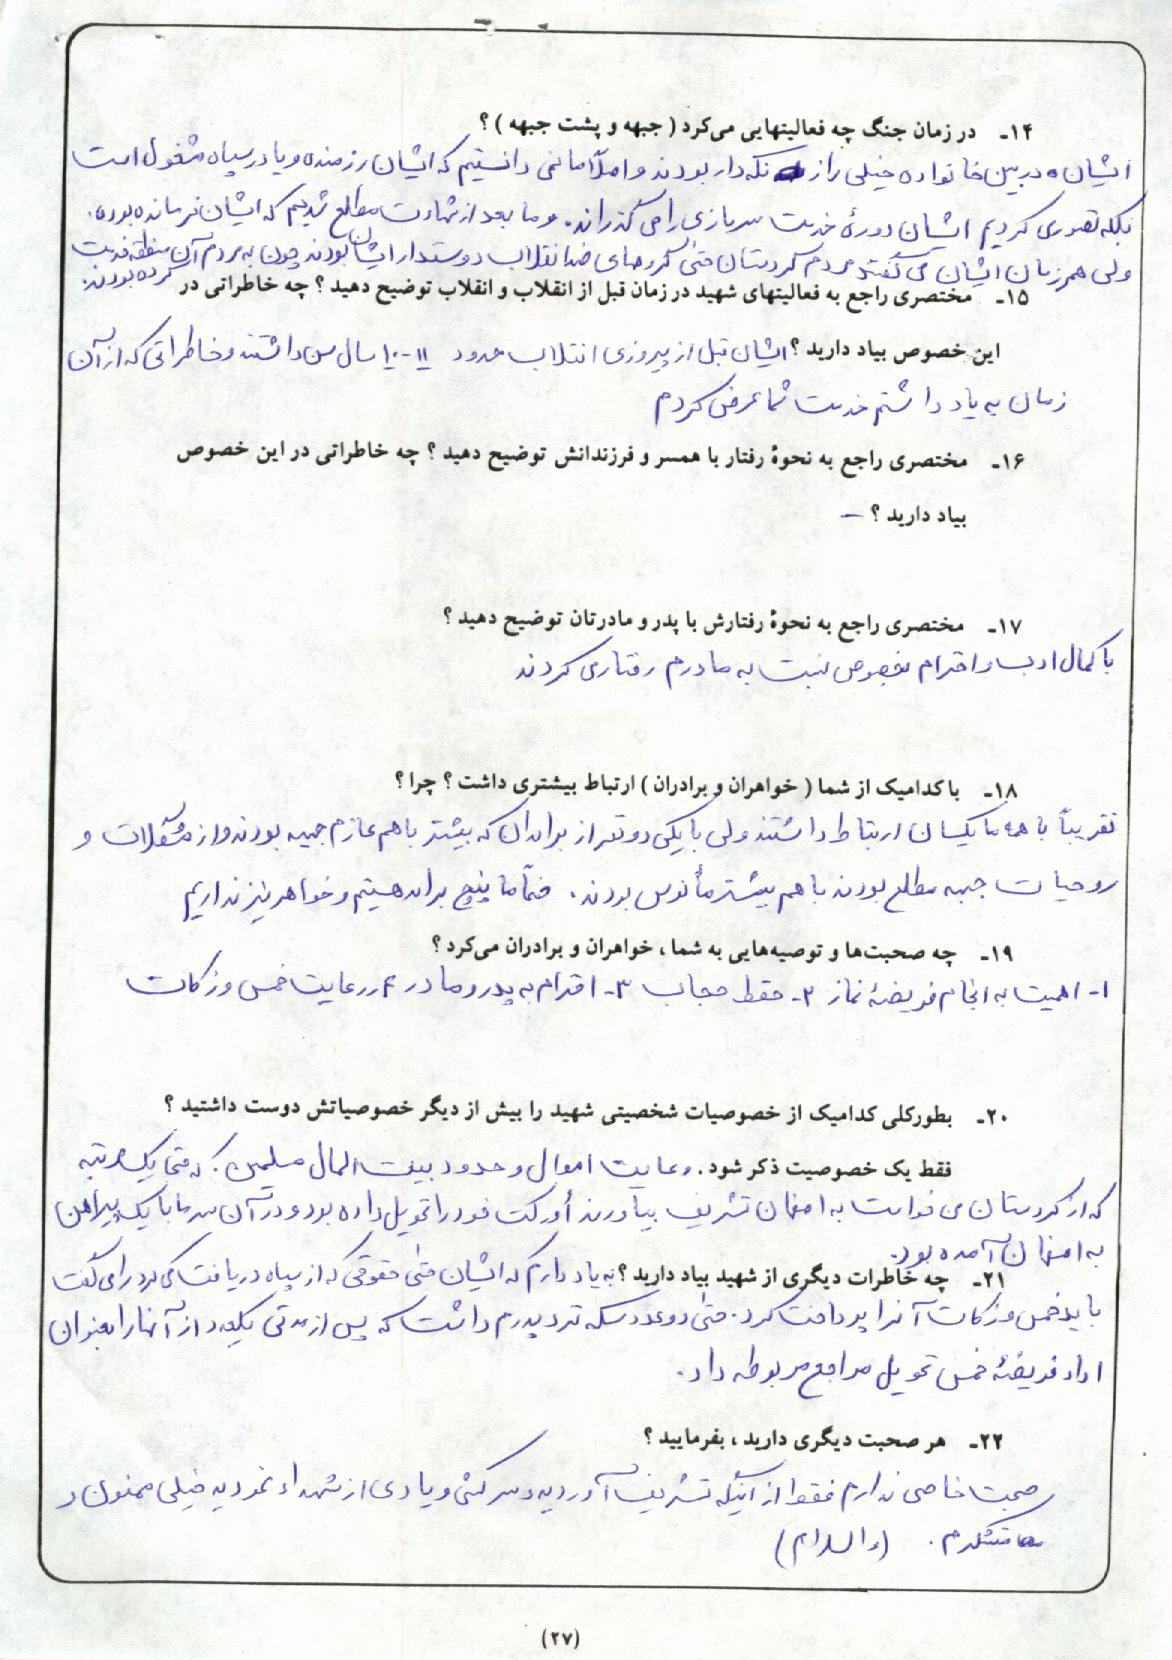 ۱۴- در زمان جنگ چه فعالیتهایی می‌کرد ( جبهه و پشت جبهه ) ؟
ایشان در بین خانواده خیلی راز نگه‌دار بودند و اصلاً ما نمی دانستیم که ایشان رزمنده و یا در سپاه مشغول است
بلکه تصور می کردیم ایشان دورهٔ خدمت سربازی را می گذراند. و ما بعد از شهادت مطلع شدیم که ایشان فرمانده بوده.
ولی همرزمان ایشان می گفتند مردم کردستان حتی گروههای ضد انقلاب دوستدار ایشان بودند چون به مردم آن منطقه خدمت کرده بودند.
۱۵- مختصری راجع به فعالیتهای شهید در زمان قبل از انقلاب و انقلاب توضیح دهید ؟ چه خاطراتی در
این خصوص بیاد دارید ؟ ایشان قبل از پیروزی انقلاب حدود ۱۱-۱۰ سال سن داشتند و خاطراتی که از آن
زمان به یاد داشتم خدمت شما عرض کردم
۱۶- مختصری راجع به نحوهٔ رفتار با همسر و فرزندانش توضیح دهید ؟ چه خاطراتی در این خصوص
بیاد دارید ؟ —
۱۷- مختصری راجع به نحوهٔ رفتارش با پدر و مادرتان توضیح دهید ؟
با کمال ادب و احترام بخصوص نسبت به مادرم رفتار می کردند
۱۸- با کدامیک از شما ( خواهران و برادران ) ارتباط بیشتری داشت ؟ چرا ؟
تقریباً با همه ما یکسان ارتباط داشتند ولی با یکی دو نفر از برادران که بیشتر با هم عازم جبهه بودند و از مشکلات و
روحیات جبهه مطلع بودند با هم بیشتر مأنوس بودند. ضمناً ما پنج برادر هستیم و خواهر نیز نداریم
۱۹- چه صحبت‌ها و توصیه‌هایی به شما ، خواهران و برادران می‌کرد ؟
۱- اهمیت به انجام فریضهٔ نماز ۲- حفظ حجاب ۳- احترام به پدر و مادر ۴- رعایت خمس و زکات
۲۰- بطورکلی کدامیک از خصوصیات شخصیتی شهید را بیش از دیگر خصوصیاتش دوست داشتید ؟
فقط یک خصوصیت ذکر شود . رعایت اموال و حدود بیت المال مسلمین. که حتی یک مرتبه
که از کردستان می خواست به اصفهان تشریف بیاورند اُورکت خود را تحویل داده بود و در آن سرما با یک پیراهن
به اصفهان آمده بود.
۲۱- چه خاطرات دیگری از شهید بیاد دارید ؟ به یاد دارم که ایشان حتی حقوقی که از سپاه دریافت می کرد را می گفت
باید خمس و زکات آنرا پرداخت کرد. حتی دو عدد سکه نزد پدرم داشت که پس از مدتی یک عدد از آنها را بعنوان
اداء فریضهٔ خمس تحویل مراجع مربوطه داد.
۲۲- هر صحبت دیگری دارید ، بفرمایید ؟
صحبت خاصی ندارم فقط از اینکه تشریف آوردید و سرکشی و یادی از شهداء نمودید خیلی ممنون و
متشکرم. (والسلام)
(۲۷)